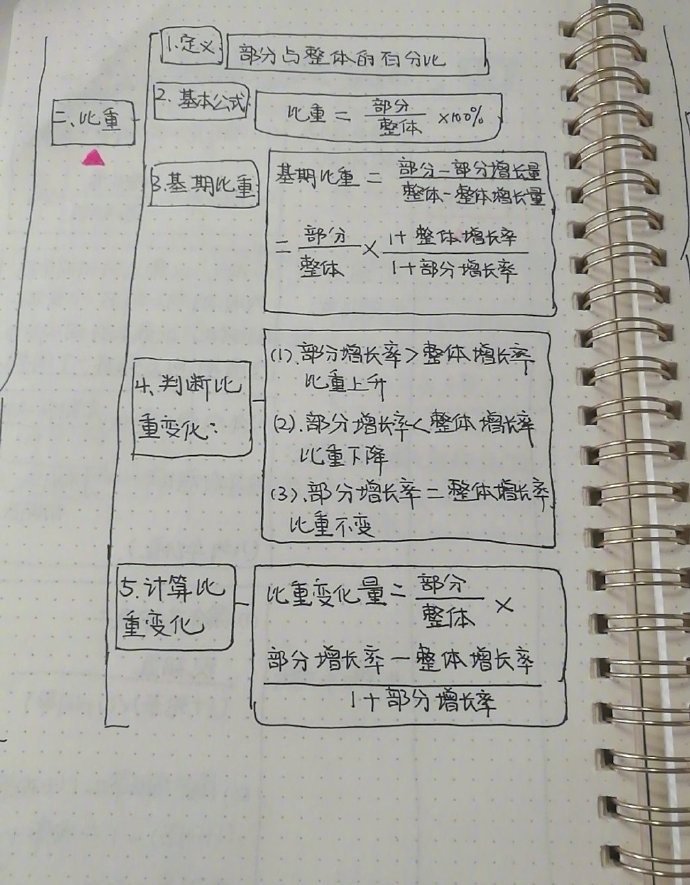 二、比重
1.定义
部分与整体的百分比
2.基本公式
比重 = 部分/整体 ×100%
3.基期比重
基期比重 = 部分-部分增长量/整体-整体增长量
= 部分/整体 × 1+整体增长率/1+部分增长率
4.判断比
重变化:
(1).部分增长率>整体增长率
比重上升
(2).部分增长率<整体增长率
比重下降
(3).部分增长率=整体增长率
比重不变
5.计算比
重变化
比重变化量=部分/整体 ×
部分增长率-整体增长率
1+部分增长率